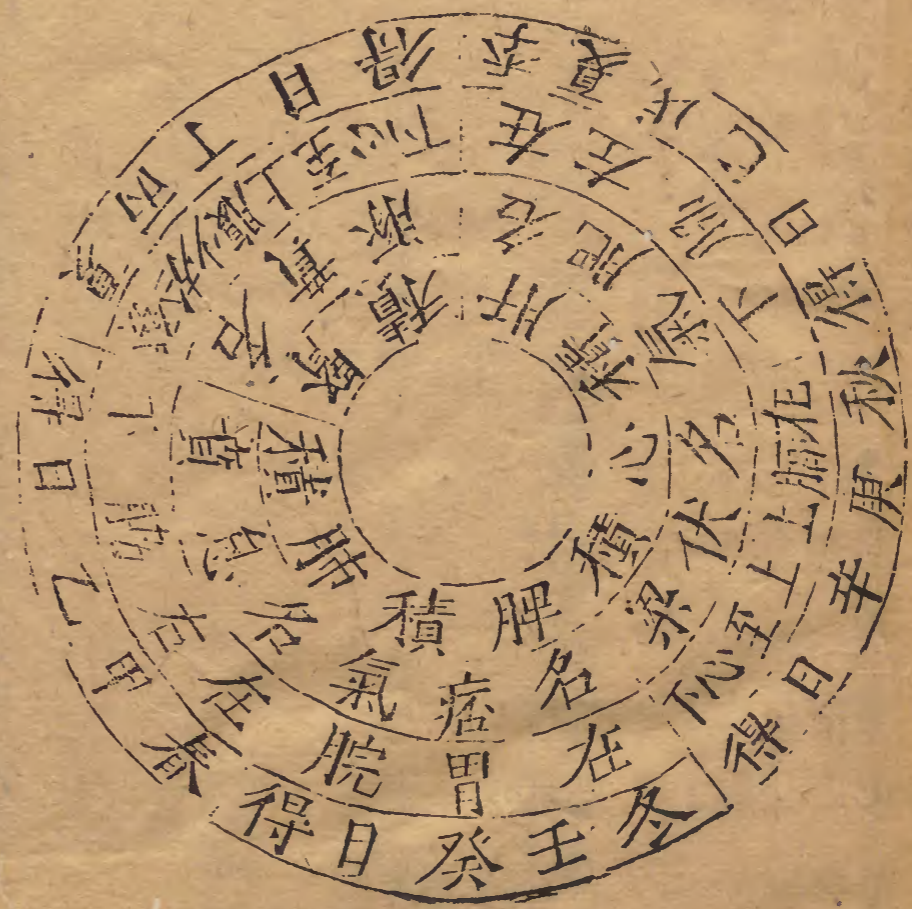 肝積
名肥氣
在左脇下
季夏戊己日得
心積
名伏梁
在臍上上至心下
秋庚辛日得
脾積
名痞氣
在胃脘
冬壬癸日得
肺積
名息賁
在右脇下
春甲乙日得
腎積
名賁豚
發於少腹上至心下
夏丙丁日得